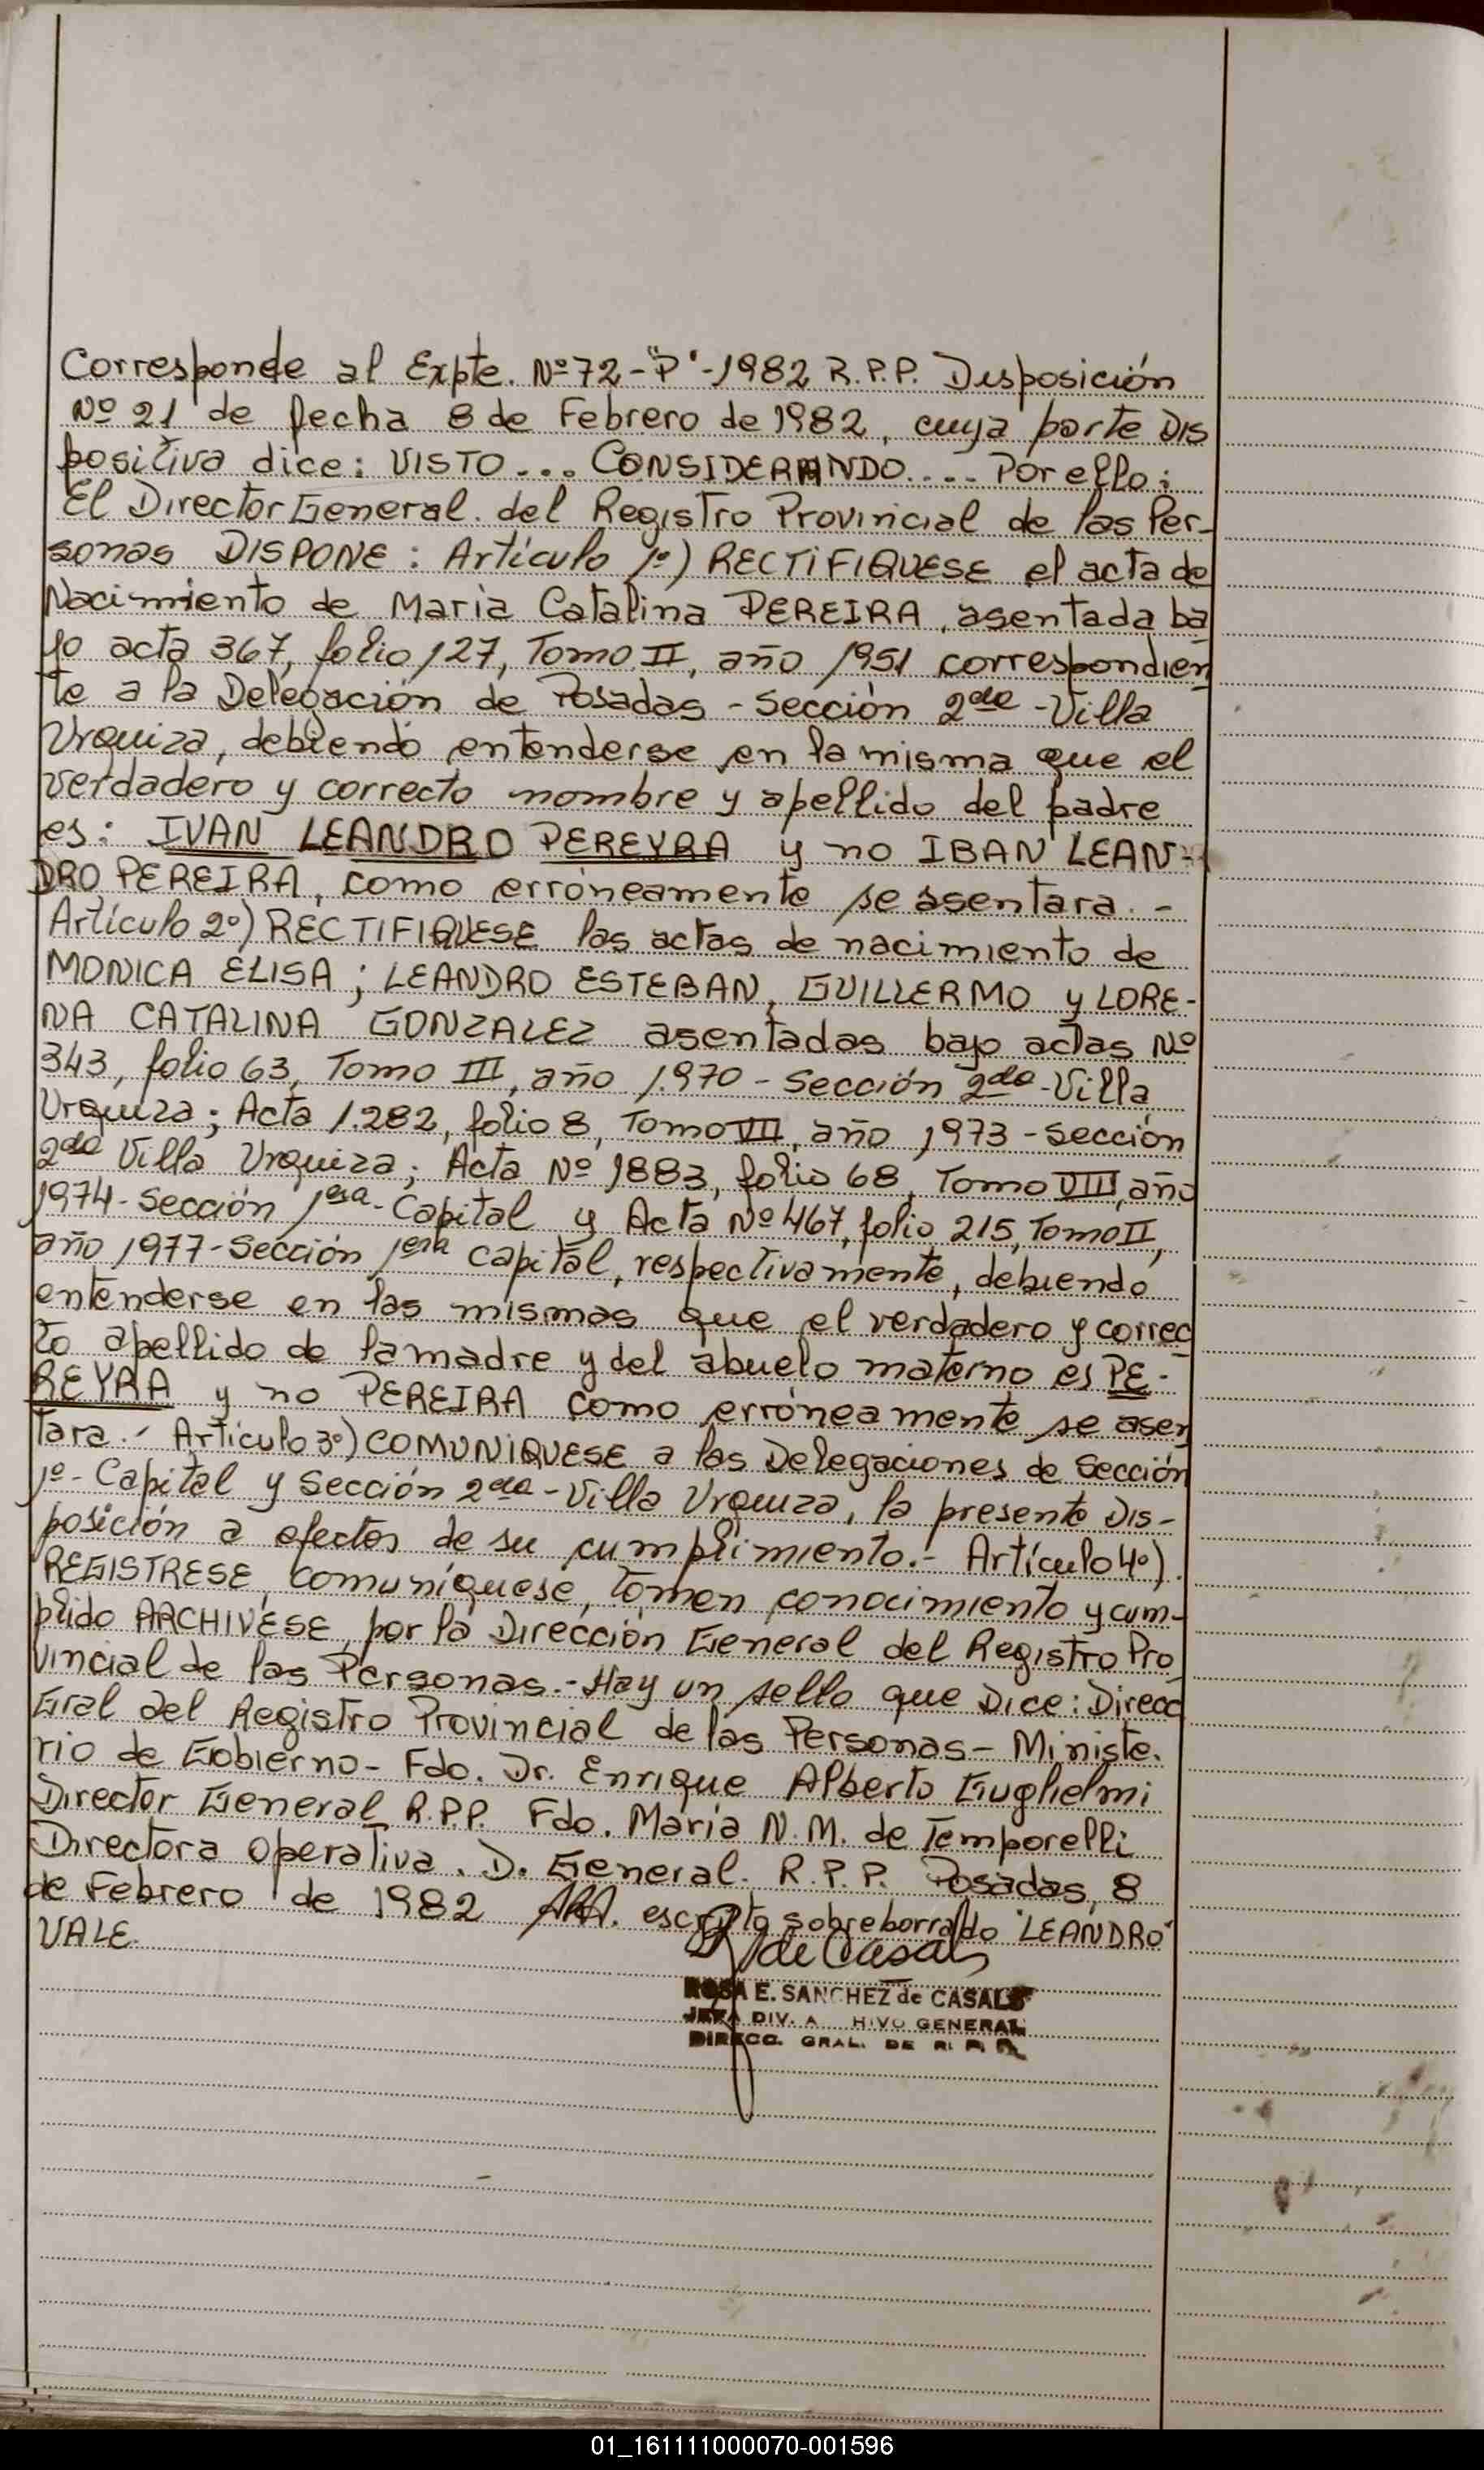 Corresponde al Expte. Nº 72-"P"-1982 R.P.P. Disposición
Nº 21 de fecha 8 de Febrero de 1982, cuya parte Dis
positiva dice: VISTO... CONSIDERANDO.... Por ello:
El Director General. del Registro Provincial de las Per-
sonas DISPONE: Artículo 1º) RECTIFIQUESE el acta de
Nacimiento de Maria Catalina PEREIRA, asentada ba
jo acta 367, folio 127, Tomo II, año 1951 correspondien
te a la Delegación de Posadas - Sección 2da - Villa
Urquiza, debiendo entenderse en la misma que el
verdadero y correcto nombre y apellido del padre
es: IVAN LEANDRO PEREYRA y no IBAN LEAN-
DRO PEREIRA, como erróneamente se asentara. -
Artículo 2º) RECTIFIQUESE las actas de nacimiento de
MONICA ELISA; LEANDRO ESTEBAN, GUILLERMO y LORE-
NA CATALINA GONZALEZ asentadas bajo actas Nº
343, folio 63, Tomo III, año 1.970 - Sección 2da - Villa
Urquiza; Acta 1.282, folio 8, Tomo VII, año 1973 - Sección
2da Villa Urquiza; Acta Nº 1883, folio 68, Tomo VIII, año
1974 - Sección 1era - Capital y Acta Nº 467, folio 215, Tomo II,
año 1977 - Sección 1era Capital, respectivamente, debiendo
entenderse en las mismas que el verdadero y correc
to apellido de la madre y del abuelo materno es PE-
REYRA y no PEREIRA como erróneamente se asen
tara.- Artículo 3º) COMUNIQUESE a las Delegaciones de Sección
1º - Capital y Sección 2da - Villa Urquiza, la presente Dis-
posición a efectos de su cumplimiento.- Artículo 4º)
REGISTRESE, comuníquese, tomen conocimiento y cum-
plido ARCHIVESE, por la Dirección General del Registro Pro
vincial de las Personas.- Hay un sello que Dice: Direcc
Gral del Registro Provincial de las Personas - Ministe.
rio de Gobierno - Fdo. Dr. Enrique Alberto Guglielmi
Director General R.P.P. Fdo. Maria N. M. de Temporelli
Directora Operativa. D. General. R.P.P. Posadas, 8
de Febrero de 1982 escrito sobreborrado "LEANDRO"
VALE.
de Casals
ROSA E. SANCHEZ de CASALS
JEFA DIV. A HIVO GENERAL
DIRECC. GRAL. DE R. P. P.
01_161111000070-001596